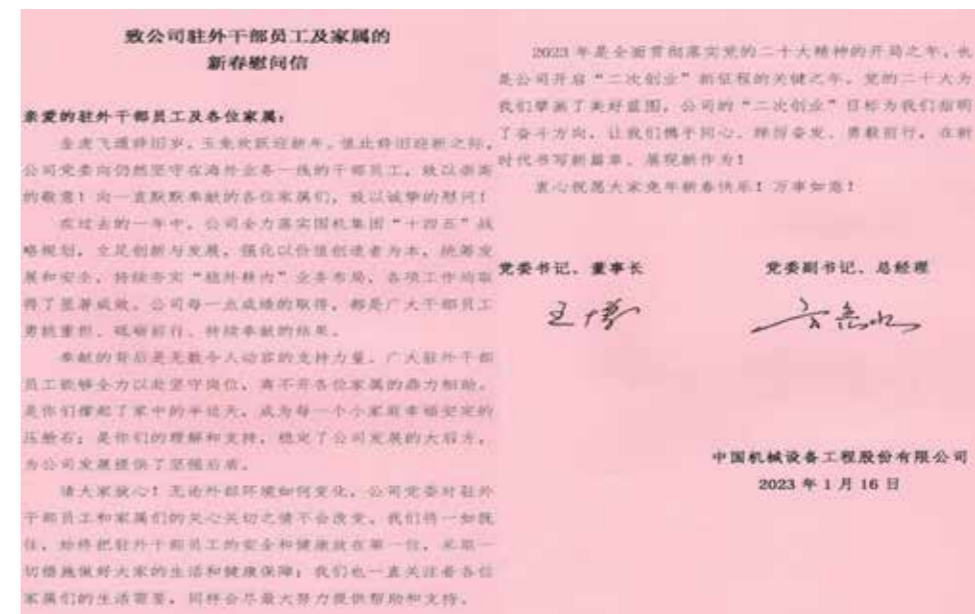 致公司驻外干部员工及家属的
新春慰问信
亲爱的驻外干部员工及各位家属：
金虎飞跃辞旧岁，玉兔欢跃迎新年。值此辞旧迎新之际，
公司党委向仍然坚守在海外业务一线的干部员工，致以崇高
的敬意！向一直默默奉献的各位家属们，致以诚挚的慰问！
在过去的一年中，公司全力落实国机集团“十四五”战
略规划，立足创新与发展，强化以价值创造者为本，统筹发
展和安全，持续夯实“稳外耕内”业务布局，各项工作均取
得了显著成效。公司每一点成绩的取得，都是广大干部员工
勇挑重担、砥砺前行、持续奉献的结果。
奉献的背后是无数令人动容的支持力量。广大驻外干部
员工能够全力以赴坚守岗位，离不开各位家属的鼎力相助。
是你们撑起了家中的半边天，成为每一个小家庭幸福安定的
压舱石；是你们的理解和支持，稳定了公司发展的大后方，
为公司发展提供了坚强后盾。
请大家放心！无论外部环境如何变化，公司党委对驻外
干部员工和家属们的关心关切之情不会改变。我们将一如既
往，始终把驻外干部员工的安全和健康放在第一位，采取一
切措施做好大家的生活和健康保障；我们也一直关注着各位
家属们的生活需要，同样会尽最大努力提供帮助和支持。
2023 年是全面贯彻落实党的二十大精神的开局之年，也
是公司开启“二次创业”新征程的关键之年。党的二十大为
我们擘画了美好蓝图，公司的“二次创业”目标为我们指明
了奋斗方向，让我们携手同心、踔厉奋发、勇毅前行，在新
时代书写新篇章、展现新作为！
衷心祝愿大家兔年新春快乐！万事如意！
党委书记、董事长 党委副书记、总经理
王博
中国机械设备工程股份有限公司
2023 年 1 月 16 日